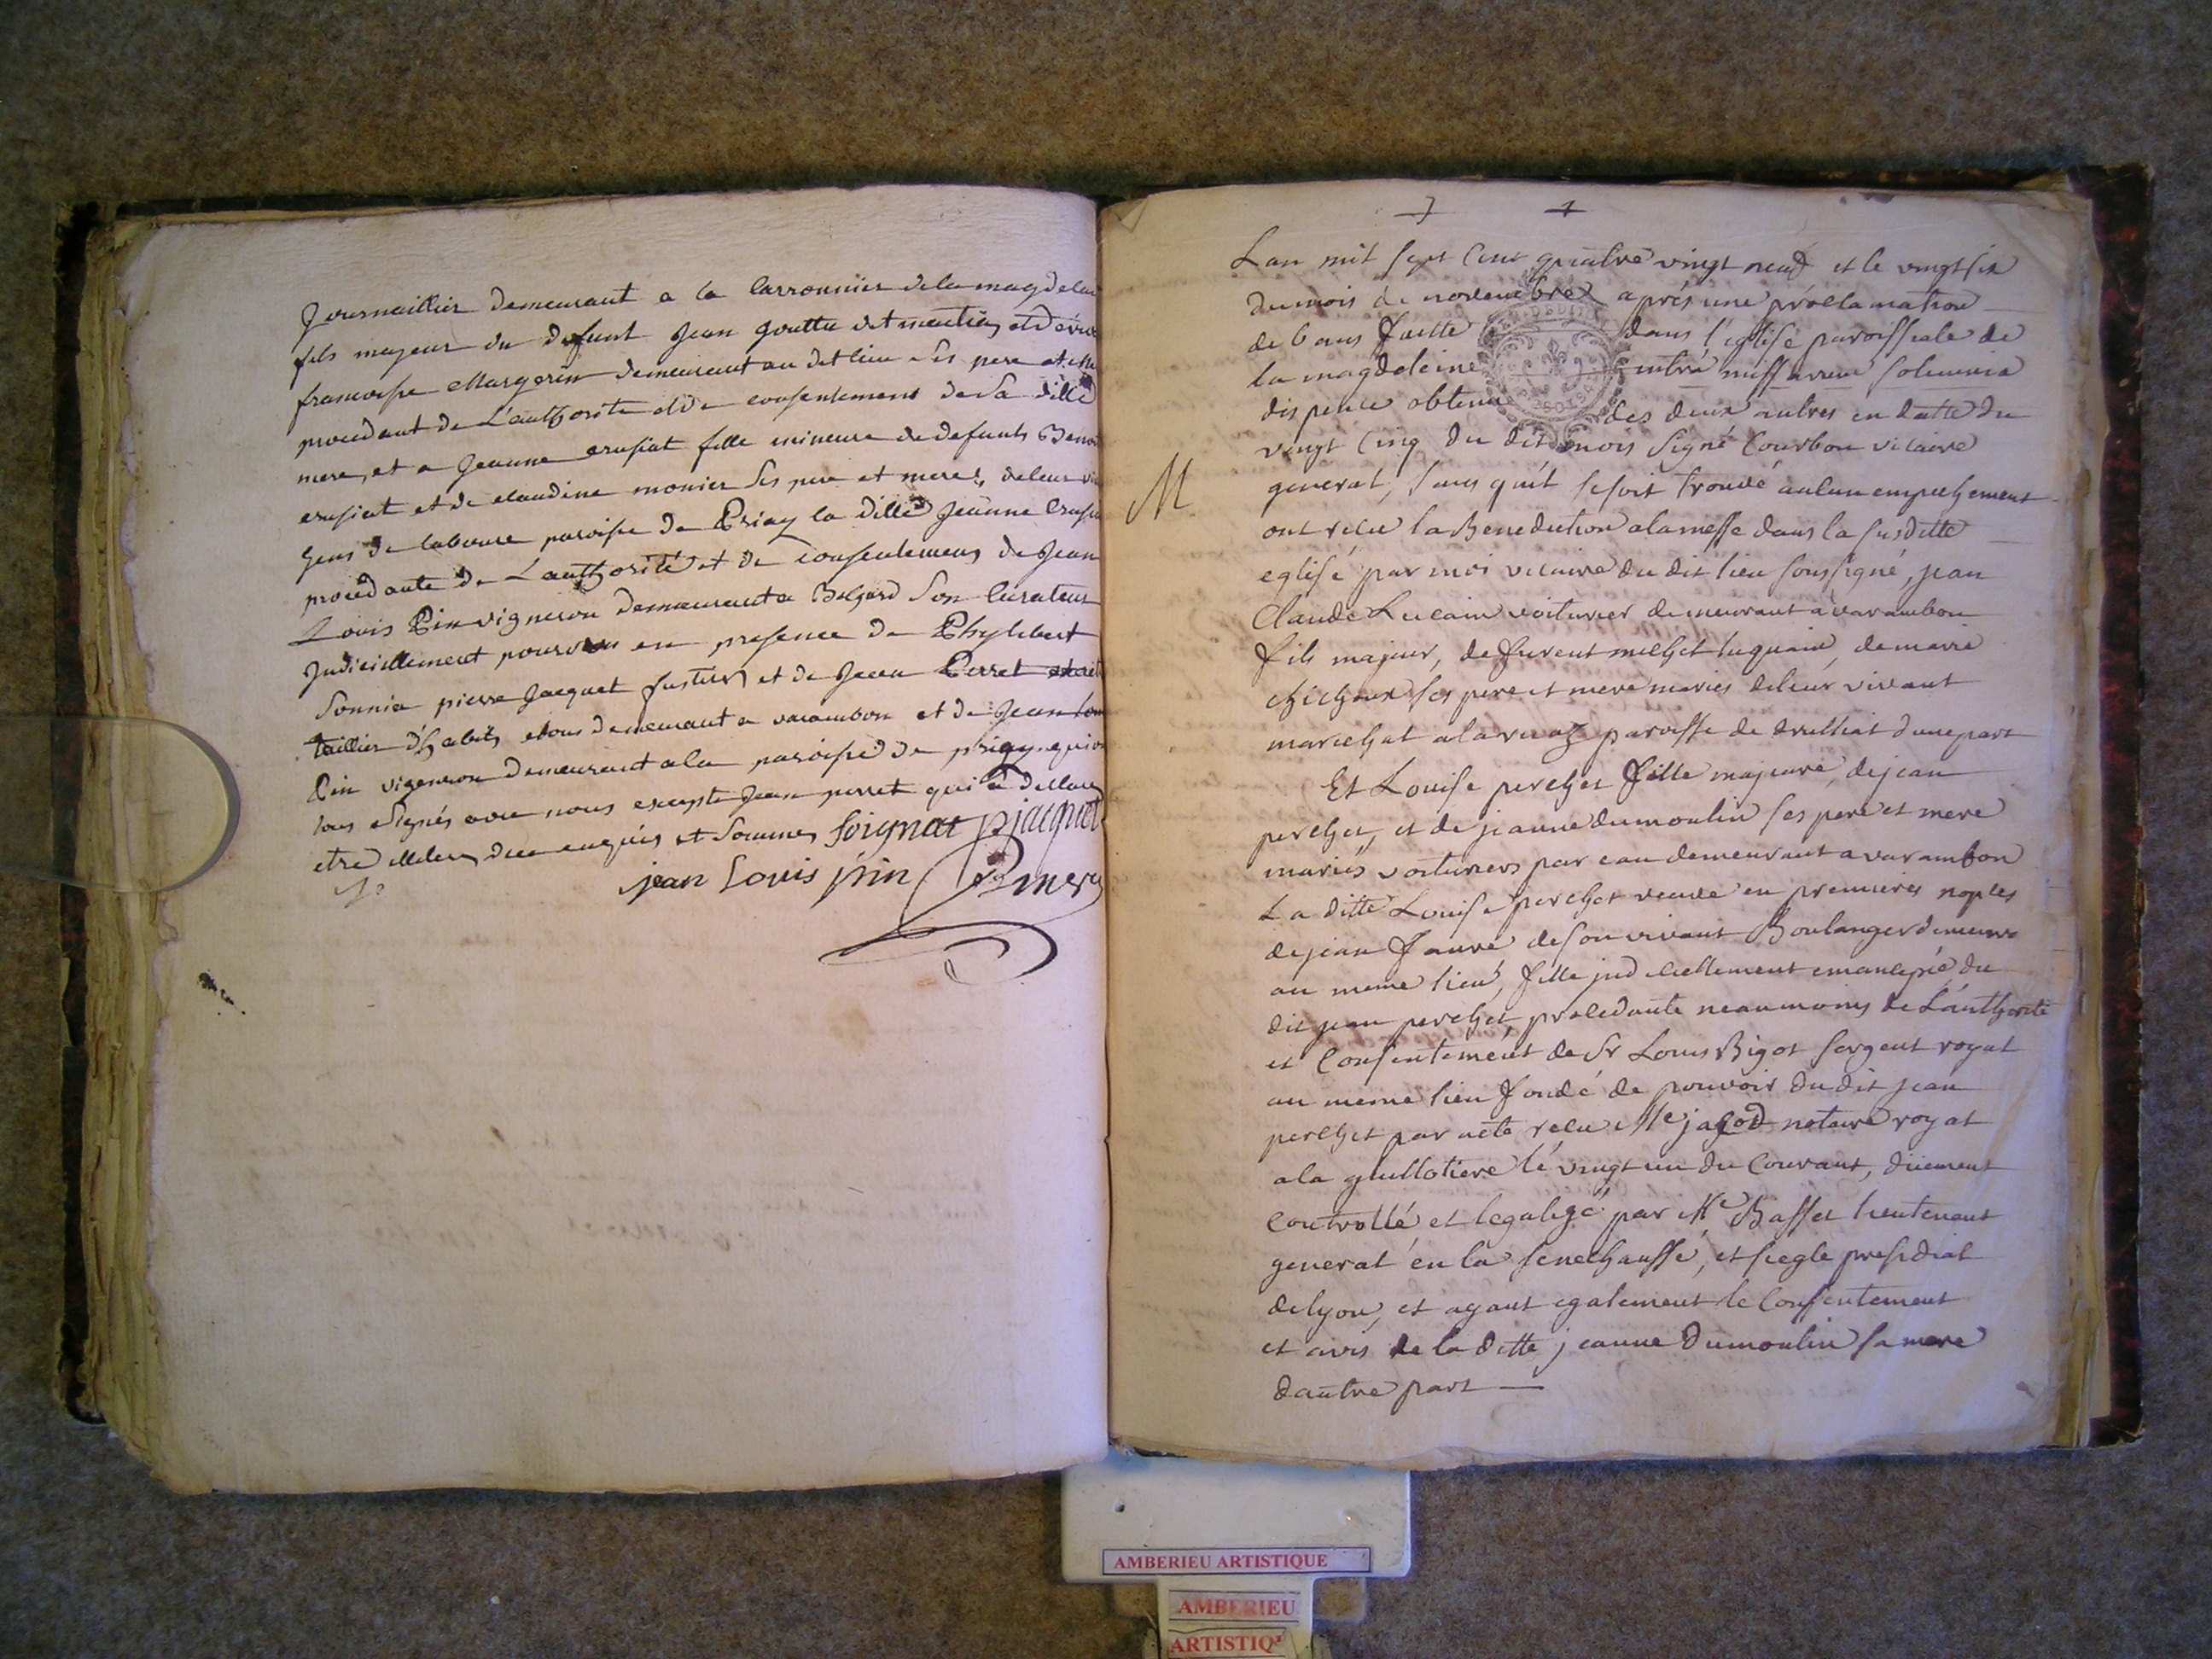 demeurant a la de la
fils majeur du defunt Jean
francoise Margerin demeurant au dit lieu ses pere et
procedant de L'authorité et de consentement de Sa ditte
mere, et a Jeanne crusiat fille mineure de defunts
crusiat et de claudine monier Ses pere et mere, de leur
gens de laboure paroisse de Priay la ditte Jeanne
procedante de L'authorité et de consentement de Jean
Louis Pin vigneron demeurant a Son curateur
Judiciellement pourvu en presence de Phylibert
Sonnia pierre Jacquet et de Jean Perret
taillier d'habits, tous demeurant a varambon et de Jean
Pin vigneron demeurant a la paroisse de
tous signés avec nous excepté Jean perret qui a
etre de ce enquis et Sommes soignat pjacquet
jean Louis pin
7 +
Lan mil sept cent quatre vingt neuf et le vingt six
du mois de novembre après une proclamation
de bans faitte dans l'eglise paroissiale de
la magdeleine entre missarum solemnia
dispence obtenue des deux autres en datte du
vingt cinq du dit mois signé Courbon vicaire
M
general, sans qu'il se soit trouvé aucun empechement
ont recu la Benediction a la messe dans la susditte
eglise par moi vicaire du dit lieu soussigné, jean
Claude Lucain voiturier demeurant a varambon
fils majeur, de furent michel luquain, de marie
ses pere et mere mariés de leur vivant
marechal a la paroisse de druilliat d'une part
Et Louise perchet fille majeure, de jean
perchet, et de jeanne dumoulin ses pere et mere
mariés voituriers par eau demeurant a varambon
La ditte Louise perchet veuve en premieres nopces
de jean faure de son vivant Boulanger
au meme lieu, fille judiciellement emancipée du
dit jean perchet, procedante neaumoins de L'authorité
et Consentement de Sr Louis Bigot sergent royal
au meme lieu fondé de pouvoir du dit jean
perchet par acte recu Me jagod notaire royal
a la guillotiere le vingt un du Courant, duement
Controllé, et legalizé par Me Basset lieutenant
general en la senechaussé, et siegle presidial
de lyon, et ayant egalement le Consentement
et avis de la ditte jeanne Dumoulin sa mere
d'autre part —
AMBERIEU ARTISTIQUE
AMBERIEU
ARTISTIQ